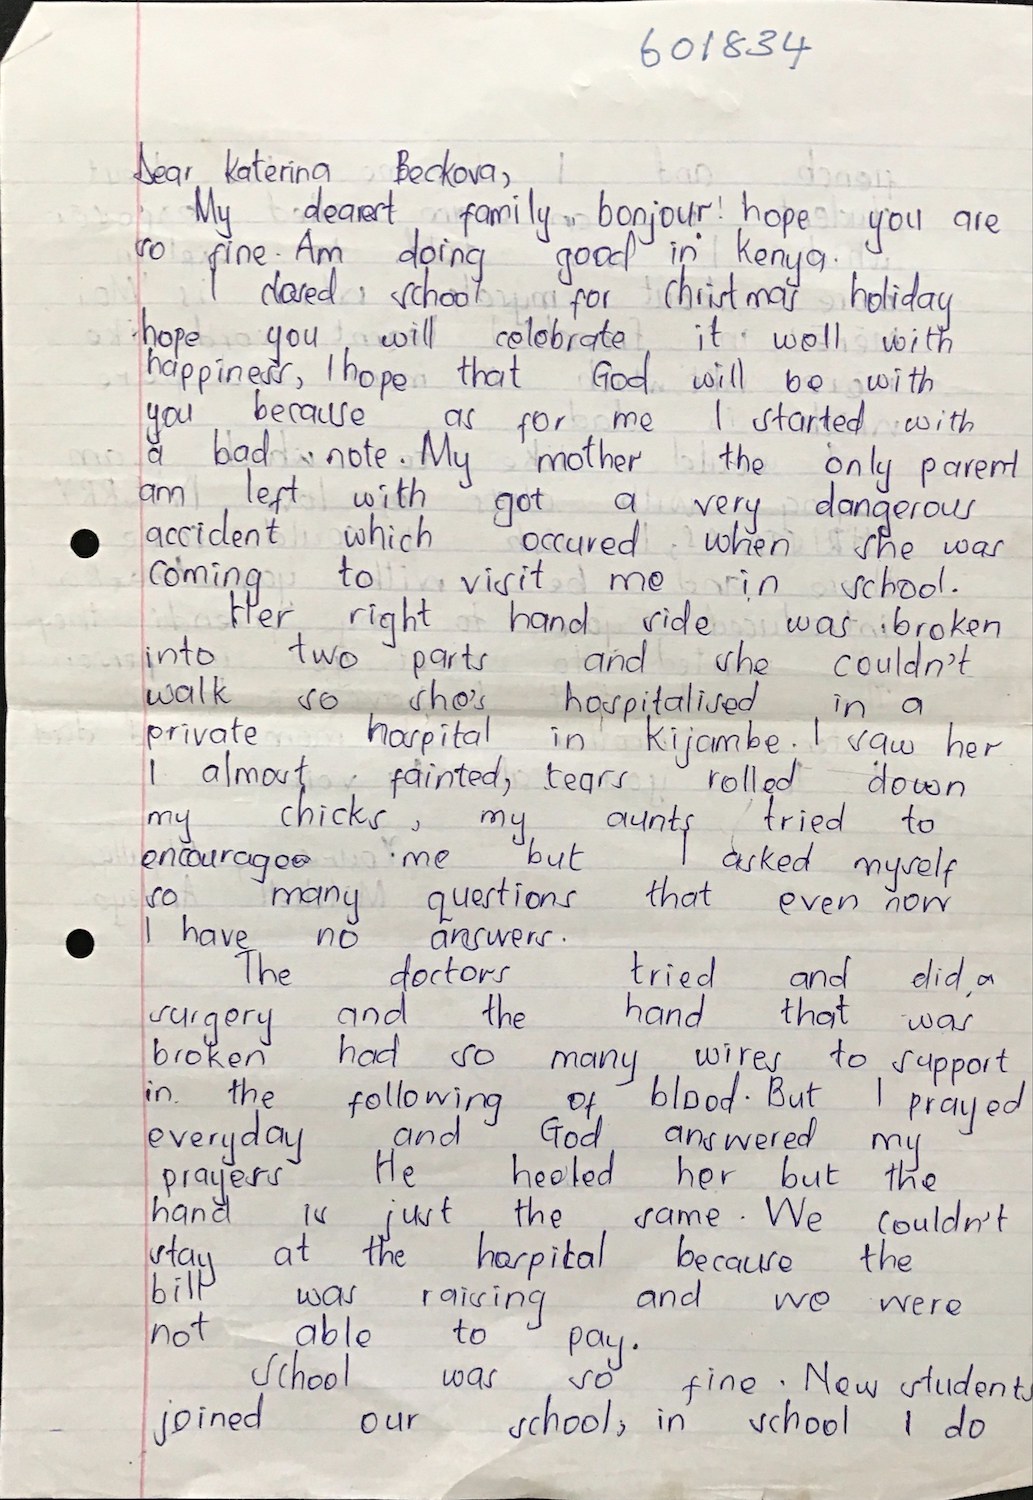 601834
Dear Katerina Beckova,
My dearest family, bonjour! hope you are
so fine. Am doing good in Kenya.
I closed school for christmas holiday
hope you will celebrate it well with
happiness, I hope that God will be with
you because as for me I started with
a bad note. My mother the only parent
am left with got a very dangerous
accident which occured when she was
coming to visit me in school.
Her right hand side was broken
into two parts and she couldn't
walk so she's hospitalised in a
private hospital in Kijambe. I saw her
I almost fainted, tears rolled down
my chicks, my aunts tried to
encourage me but I asked myself
so many questions that even now
I have no answers.
The doctors tried and did a
surgery and the hand that was
broken had so many wires to support
in the following of blood. But I prayed
everyday and God answered my
prayers He heeled her but the
hand is just the same. We couldn't
stay at the hospital because the
bill was raising and we were
not able to pay.
School was so fine. New students
joined our school, in school I do